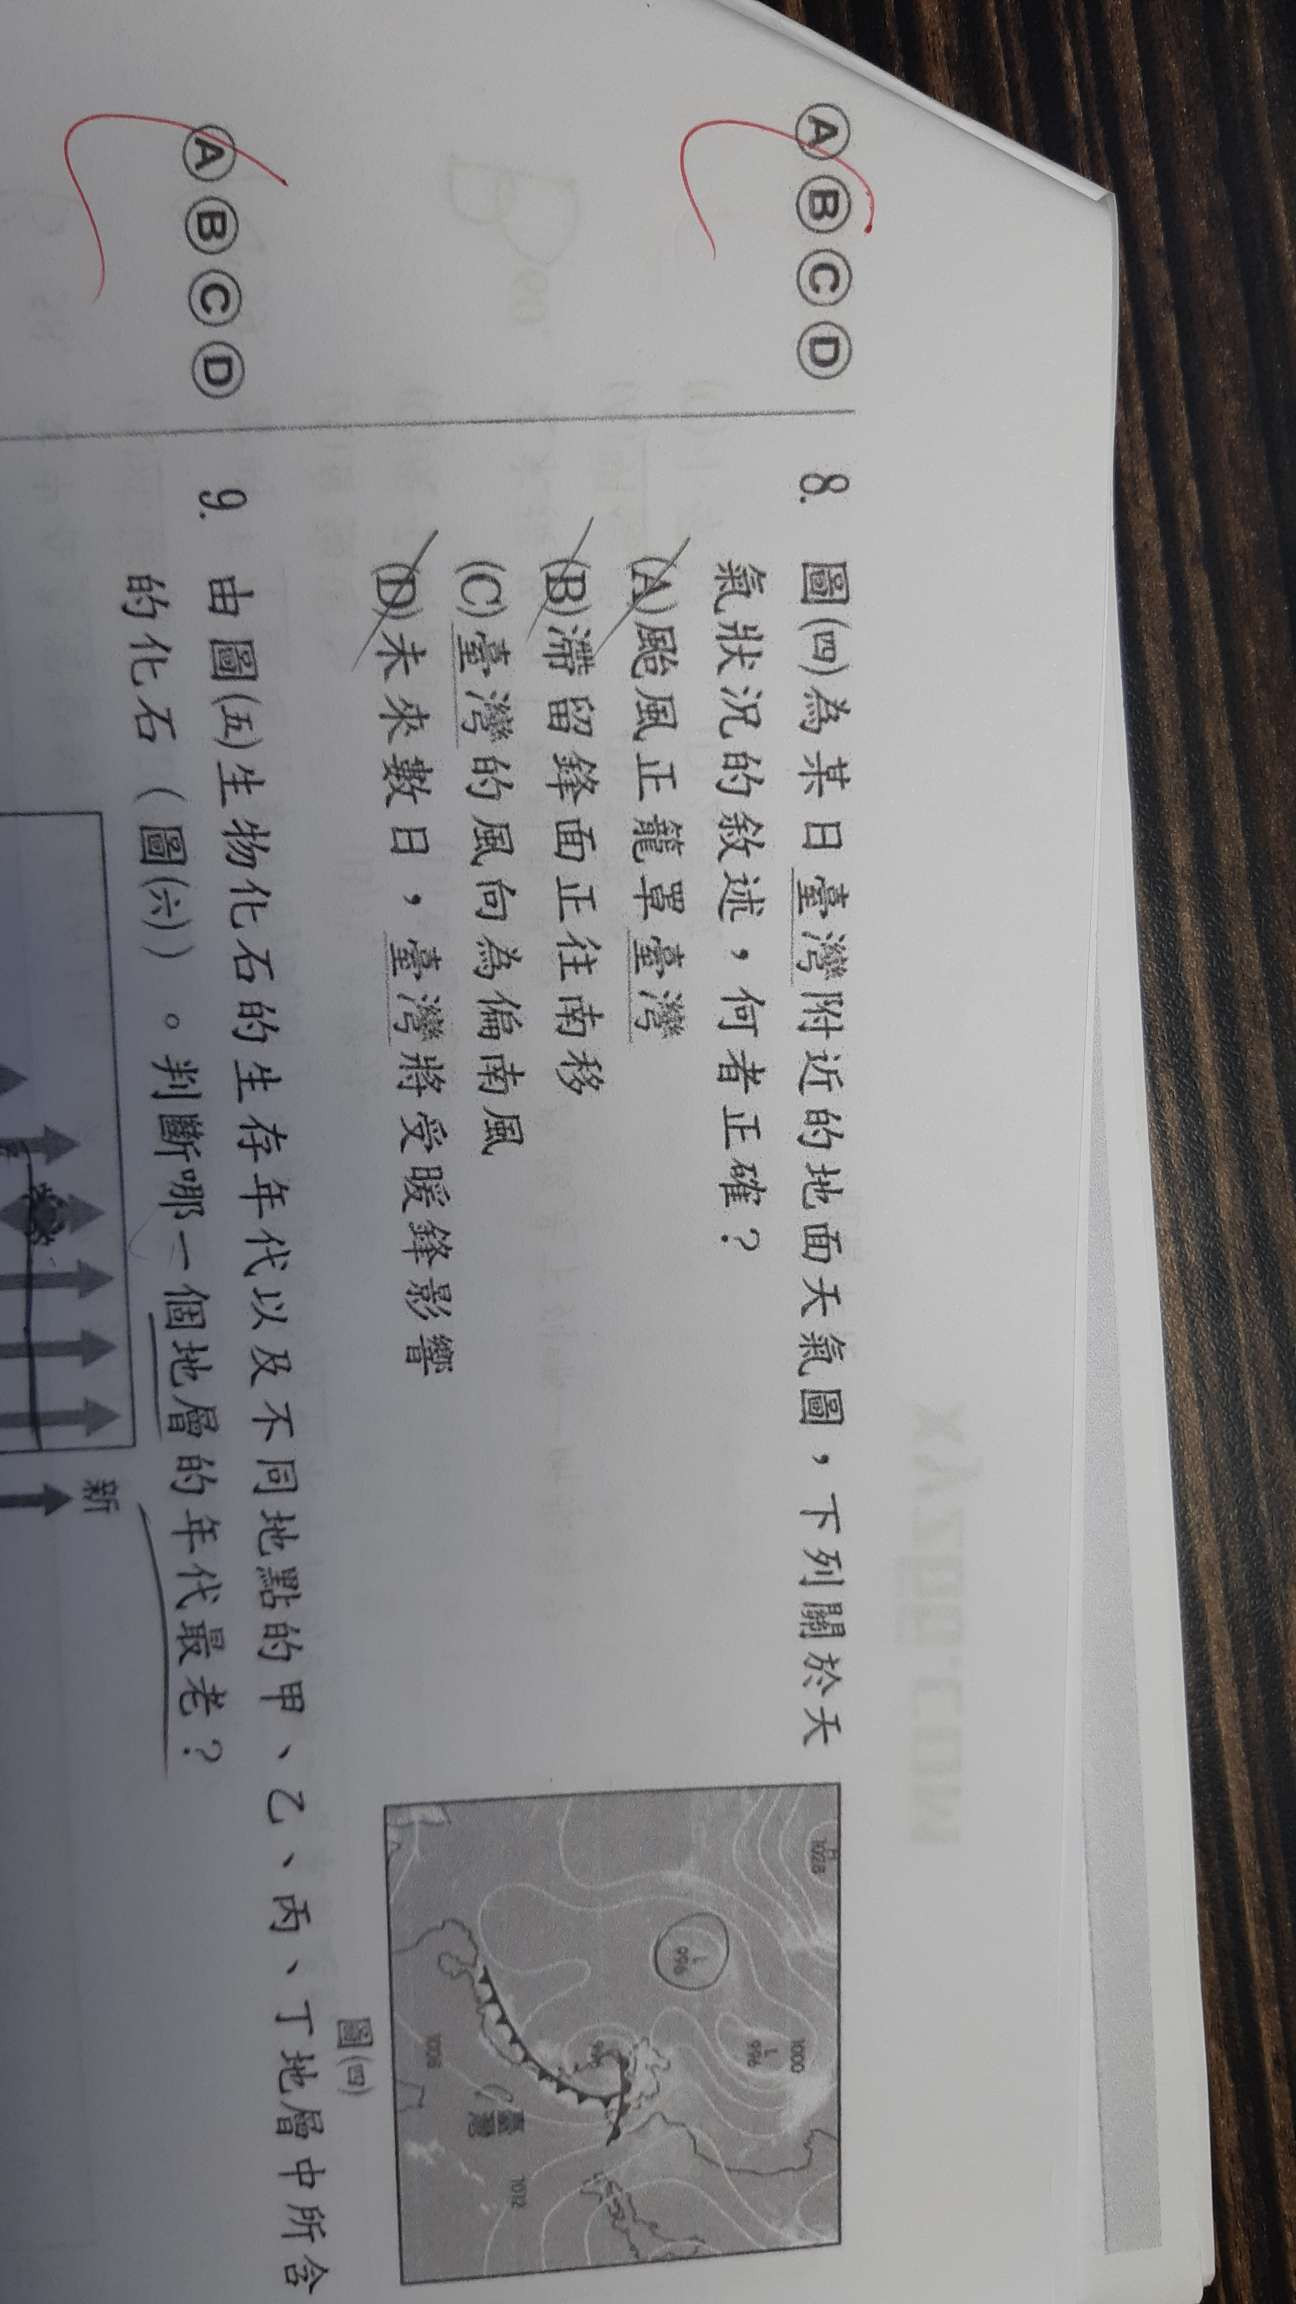 ⒶⒷⒸⒹ
8. 圖(四)為某日臺灣附近的地面天氣圖，下列關於天
氣狀況的敘述，何者正確？
(A)颱風正籠罩臺灣
(B)滯留鋒面正往南移
(C)臺灣的風向為偏南風
(D)未來數日，臺灣將受暖鋒影響
H
1028
L
996
1000
L
996
1008
臺灣
1012
圖(四)
ⒶⒷⒸⒹ
9. 由圖(五)生物化石的生存年代以及不同地點的甲、乙、丙、丁地層中所含
的化石（圖(六)）。判斷哪一個地層的年代最老？
新